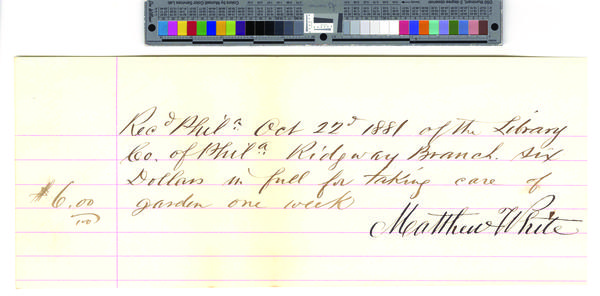 Rec^d Phil^a. Oct 22^d 1881 of the Library
Co. of Phil^a. Ridgway Branch. six
Dollars in full for taking care of
garden one week
$6.00
Matthew White